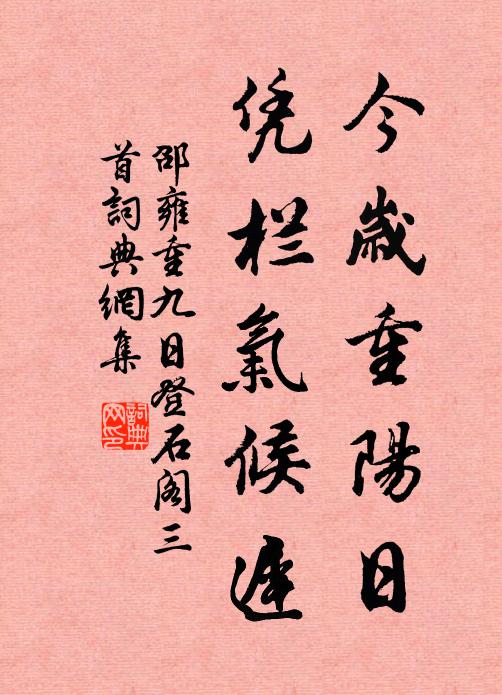 今歲重陽日
凭栏氣候遲
邵雍重九日登石阁三
首詞典網集
詞典网印